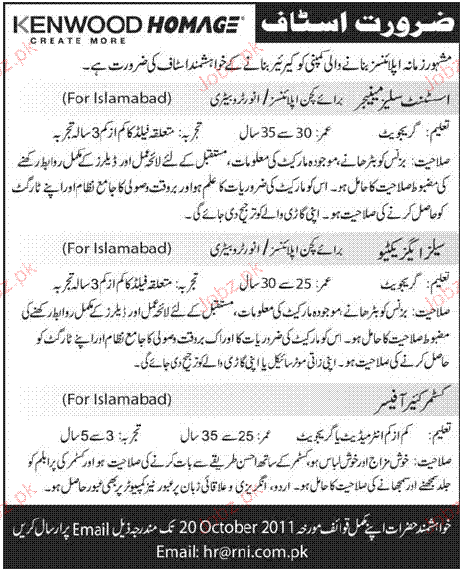 KENWOOD HOMAGE® ضرورت اسٹاف
CREATE MORE
مشہور زمانہ اپلائنسز بنانے والی کمپنی کو کیرئیر بنانے کے خواہشمند اسٹاف کی ضرورت ہے۔
اسسٹنٹ سلیز مینیجر برائے کچن اپلائنسز/انورٹر و بیٹری (For Islamabad)
تعلیم: گریجویٹ عمر: 30 سے 35 سال تجربہ: متعلقہ فیلڈ کا کم از کم 3 سالہ تجربہ
صلاحیت: بزنس کو بڑھانے، موجودہ مارکیٹ کی معلومات، مستقبل کے لئے لائحہ عمل اور ڈیلرز کے مکمل روابط رکھنے
کی مضبوط صلاحیت کا حامل ہو۔ اس کو مارکیٹ کی ضروریات کا علم ہو اور بروقت وصولی کا جامع نظام اور اپنے ٹارگٹ
کو حاصل کرنے کی صلاحیت ہو۔ اپنی گاڑی والے کو ترجیح دی جائے گی۔
سیلز ایگزیکٹیو برائے کچن اپلائنسز/انورٹر و بیٹری (For Islamabad)
تعلیم: گریجویٹ عمر: 25 سے 30 سال تجربہ: متعلقہ فیلڈ کا کم از کم 3 سالہ تجربہ
صلاحیت: بزنس کو بڑھانے، موجودہ مارکیٹ کی معلومات، مستقبل کے لئے لائحہ عمل اور ڈیلرز کے مکمل روابط رکھنے کی
مضبوط صلاحیت کا حامل ہو۔ اس کو مارکیٹ کی ضروریات کا ادراک بروقت وصولی کا جامع نظام اور اپنے ٹارگٹ کو
حاصل کرنے کی صلاحیت ہو۔ اپنی ذاتی موٹر سائیکل یا اپنی گاڑی والے کو ترجیح دی جائے گی۔
کسٹمر کئیر آفیسر (For Islamabad)
تعلیم: کم از کم انٹرمیڈیٹ یا گریجویٹ عمر: 25 سے 35 سال تجربہ: 3 سے 5 سال
صلاحیت: خوش مزاج اور خوش لباس ہو، کسٹمر کے ساتھ احسن طریقے سے بات کرنے کی صلاحیت ہو اور کسٹمر کی پرابلم کو
جلد سمجھنے اور سمجھانے کی صلاحیت کا حامل ہو۔ اردو، انگریزی و علاقائی زبان پر عبور نیز کمپیوٹر پر بھی عبور حاصل ہو۔
خواہشمند حضرات اپنے مکمل قوائف مورخہ 20 October 2011 تک مندرجہ ذیل Email پر ارسال کریں
Email: hr@rni.com.pk